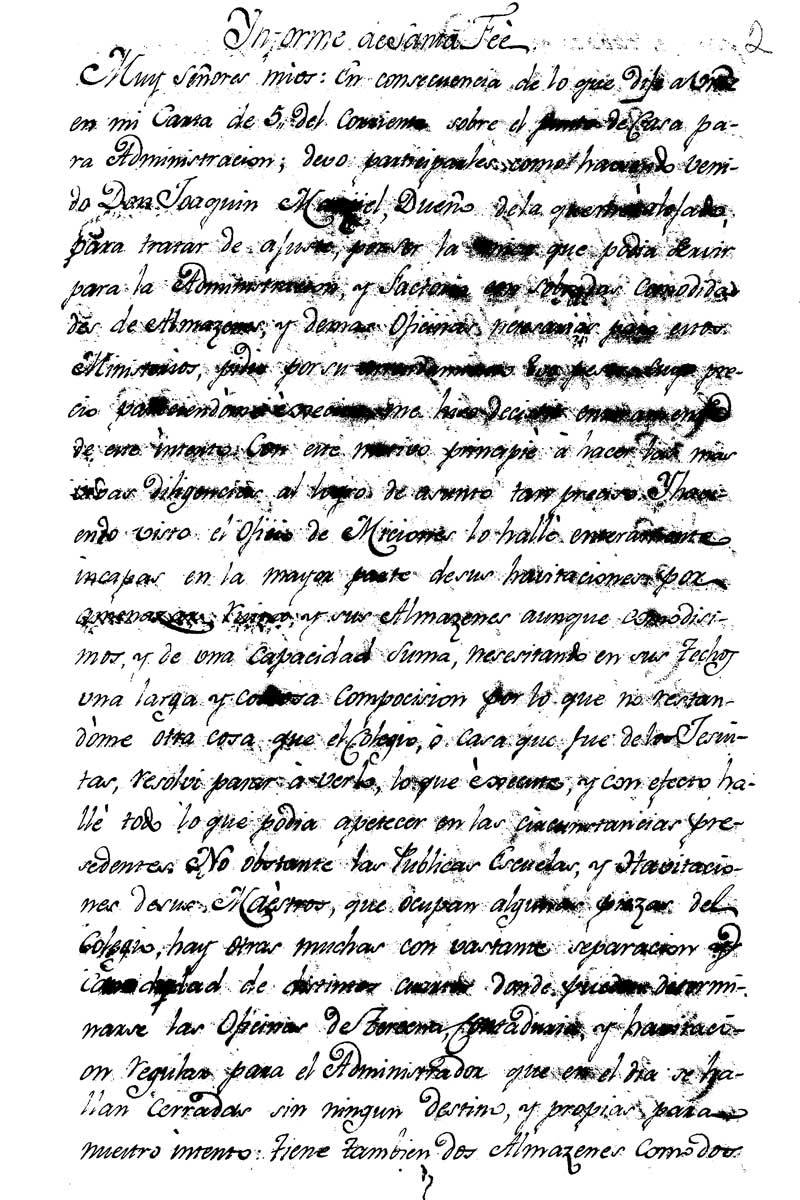 Informe de Santa Feè 2
Muy Señores mios: En consecuencia de lo que dije a Vmz
en mi Carta de 5,, del Corriente sobre el punto de Casa pa-
ra Administracion; devo participarles, como haviendo veni-
do Don Joaquin Maciel, Dueño de la que
para tratar de ajuste, por ser la que podia servir
para la Administracion, y Factoria con sobradas Comodida
des de Almazenes, y demas Oficinas necesarias para estos
Ministerios, pidio por su arrendamiento pre-
cio me hizo decistir enteramente
de este intento. Con este motivo principiè à hacer las mas
vibas diligencias al logro de asunto tan preciso. Y havi-
endo visto el Oficio de Miciones lo hallè enteramente
incapas en la mayor parte de sus havitaciones por
amenazar Ruina, y sus Almazenes aunque comodisi-
mos, y de una Capacidad suma, nesesitando en sus techos
una larga y costosa Composision por lo que no restan-
dòme òtra cosa que el Colegio, ò Casa que fue de los Jesui-
tas, resolvi pasar à verlo, lo que èxecute, y con efecto ha-
llè todo lo que podia apetecer en las circunstancias pre-
sedentes. No obstante las Publicas Escuelas, y Havitacio-
nes de sus Maèstros, que òcupan algunas piezas del
Colegio, hay otras muchas con vastante separacion y
de distintos cuartos donde pueden determi-
narse las Oficinas de Tercena, Contaduria, y havitaci-
on regular para el Administrador que en el dia se ha-
llan Cerradas sin ningun destino, y propias para
nuestro intento: tiene tambien dos Almazenes Comodos
y